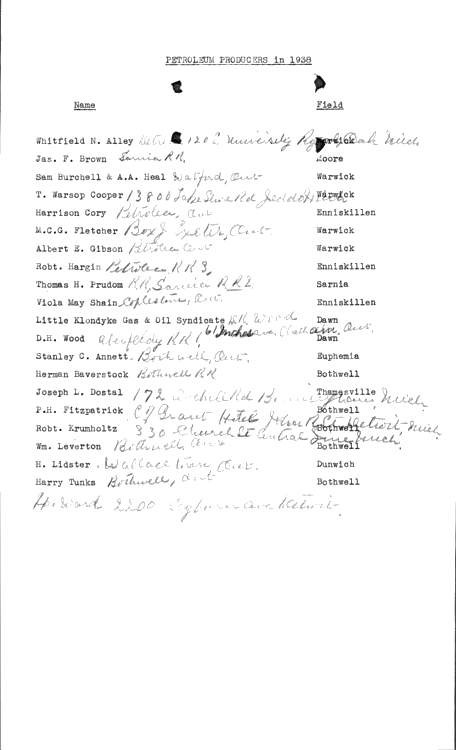 PETROLEUM PRODUCERS in 1938
Name Field
Whitfield N. Alley 120 E University Oak Mich
Jas. F. Brown Sarnia RR, Moore
Sam Burchell & A.A. Heal Watford, Ont Warwick
T. Warsop Cooper 13800 Lake Shore Rd Warwick
Harrison Cory Petrolea, Ont Enniskillen
M.C.G. Fletcher Box Exeter, Ont. Warwick
Albert E. Gibson Petrolea Ont Warwick
Robt. Hargin Petrolea RR 3, Enniskillen
Thomas H. Prudom RR, Sarnia RR 2 Sarnia
Viola May Shain Copleston, Ont. Enniskillen
Little Klondyke Gas & Oil Syndicate D.H. Wood Dawn
D.H. Wood Aberfeldy RR 1, 61 Inches ave, Chatham, Ont. Dawn
Stanley C. Annett. Bothwell, Ont. Euphemia
Herman Baverstock Bothwell RR Bothwell
Joseph L. Dostal 172 Rd Mich Thamesville
P.H. Fitzpatrick Grant Hotel John R St Detroit Mich Bothwell
Robt. Krumholtz 330 Church St Bothwell
Wm. Leverton Bothwell Ont Bothwell
H. Lidster. Wallace Ont. Dunwich
Harry Tunks Bothwell, Ont Bothwell
2200 ave Detroit